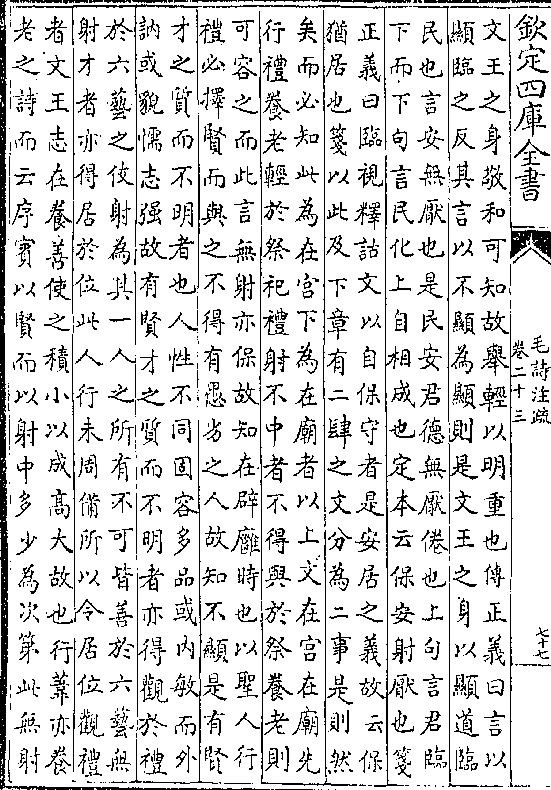 欽定四庫全書
毛詩注疏
卷二十三
七十七
文王之身敬和可知故舉輕以明重也傳正義曰言以
顯臨之反其言以不顯為顯則是文王之身以顯道臨
民也言安無厭也是民安君德無厭倦也上句言君臨
下而下句言民化上自相成也定本云保安射厭也箋
正義曰臨視釋詁文以自保守者是安居之義故云保
猶居也箋以此及下章有二肆之文分為二事是則然
矣而必知此為在宮下為在廟者以上文在宮在廟先
行禮養老輕於祭祀禮射不中者不得與於祭養老則
可容之而此言無射亦保故知在辟廱時也以聖人行
禮必擇賢而與之不得有愚劣之人故知不顯是有賢
才之質而不明者也人性不同固容多品或內敏而外
訥或貌懦志强故有賢才之質而不明者亦得觀於禮
於六藝之伎射為其一人之所有不可皆善於六藝無
射才者亦得居於位此人行未周備所以令居位觀禮
者文王志在養善使之積小以成高大故也行葦亦養
老之詩而云序賓以賢而以射中多少為次第此無射